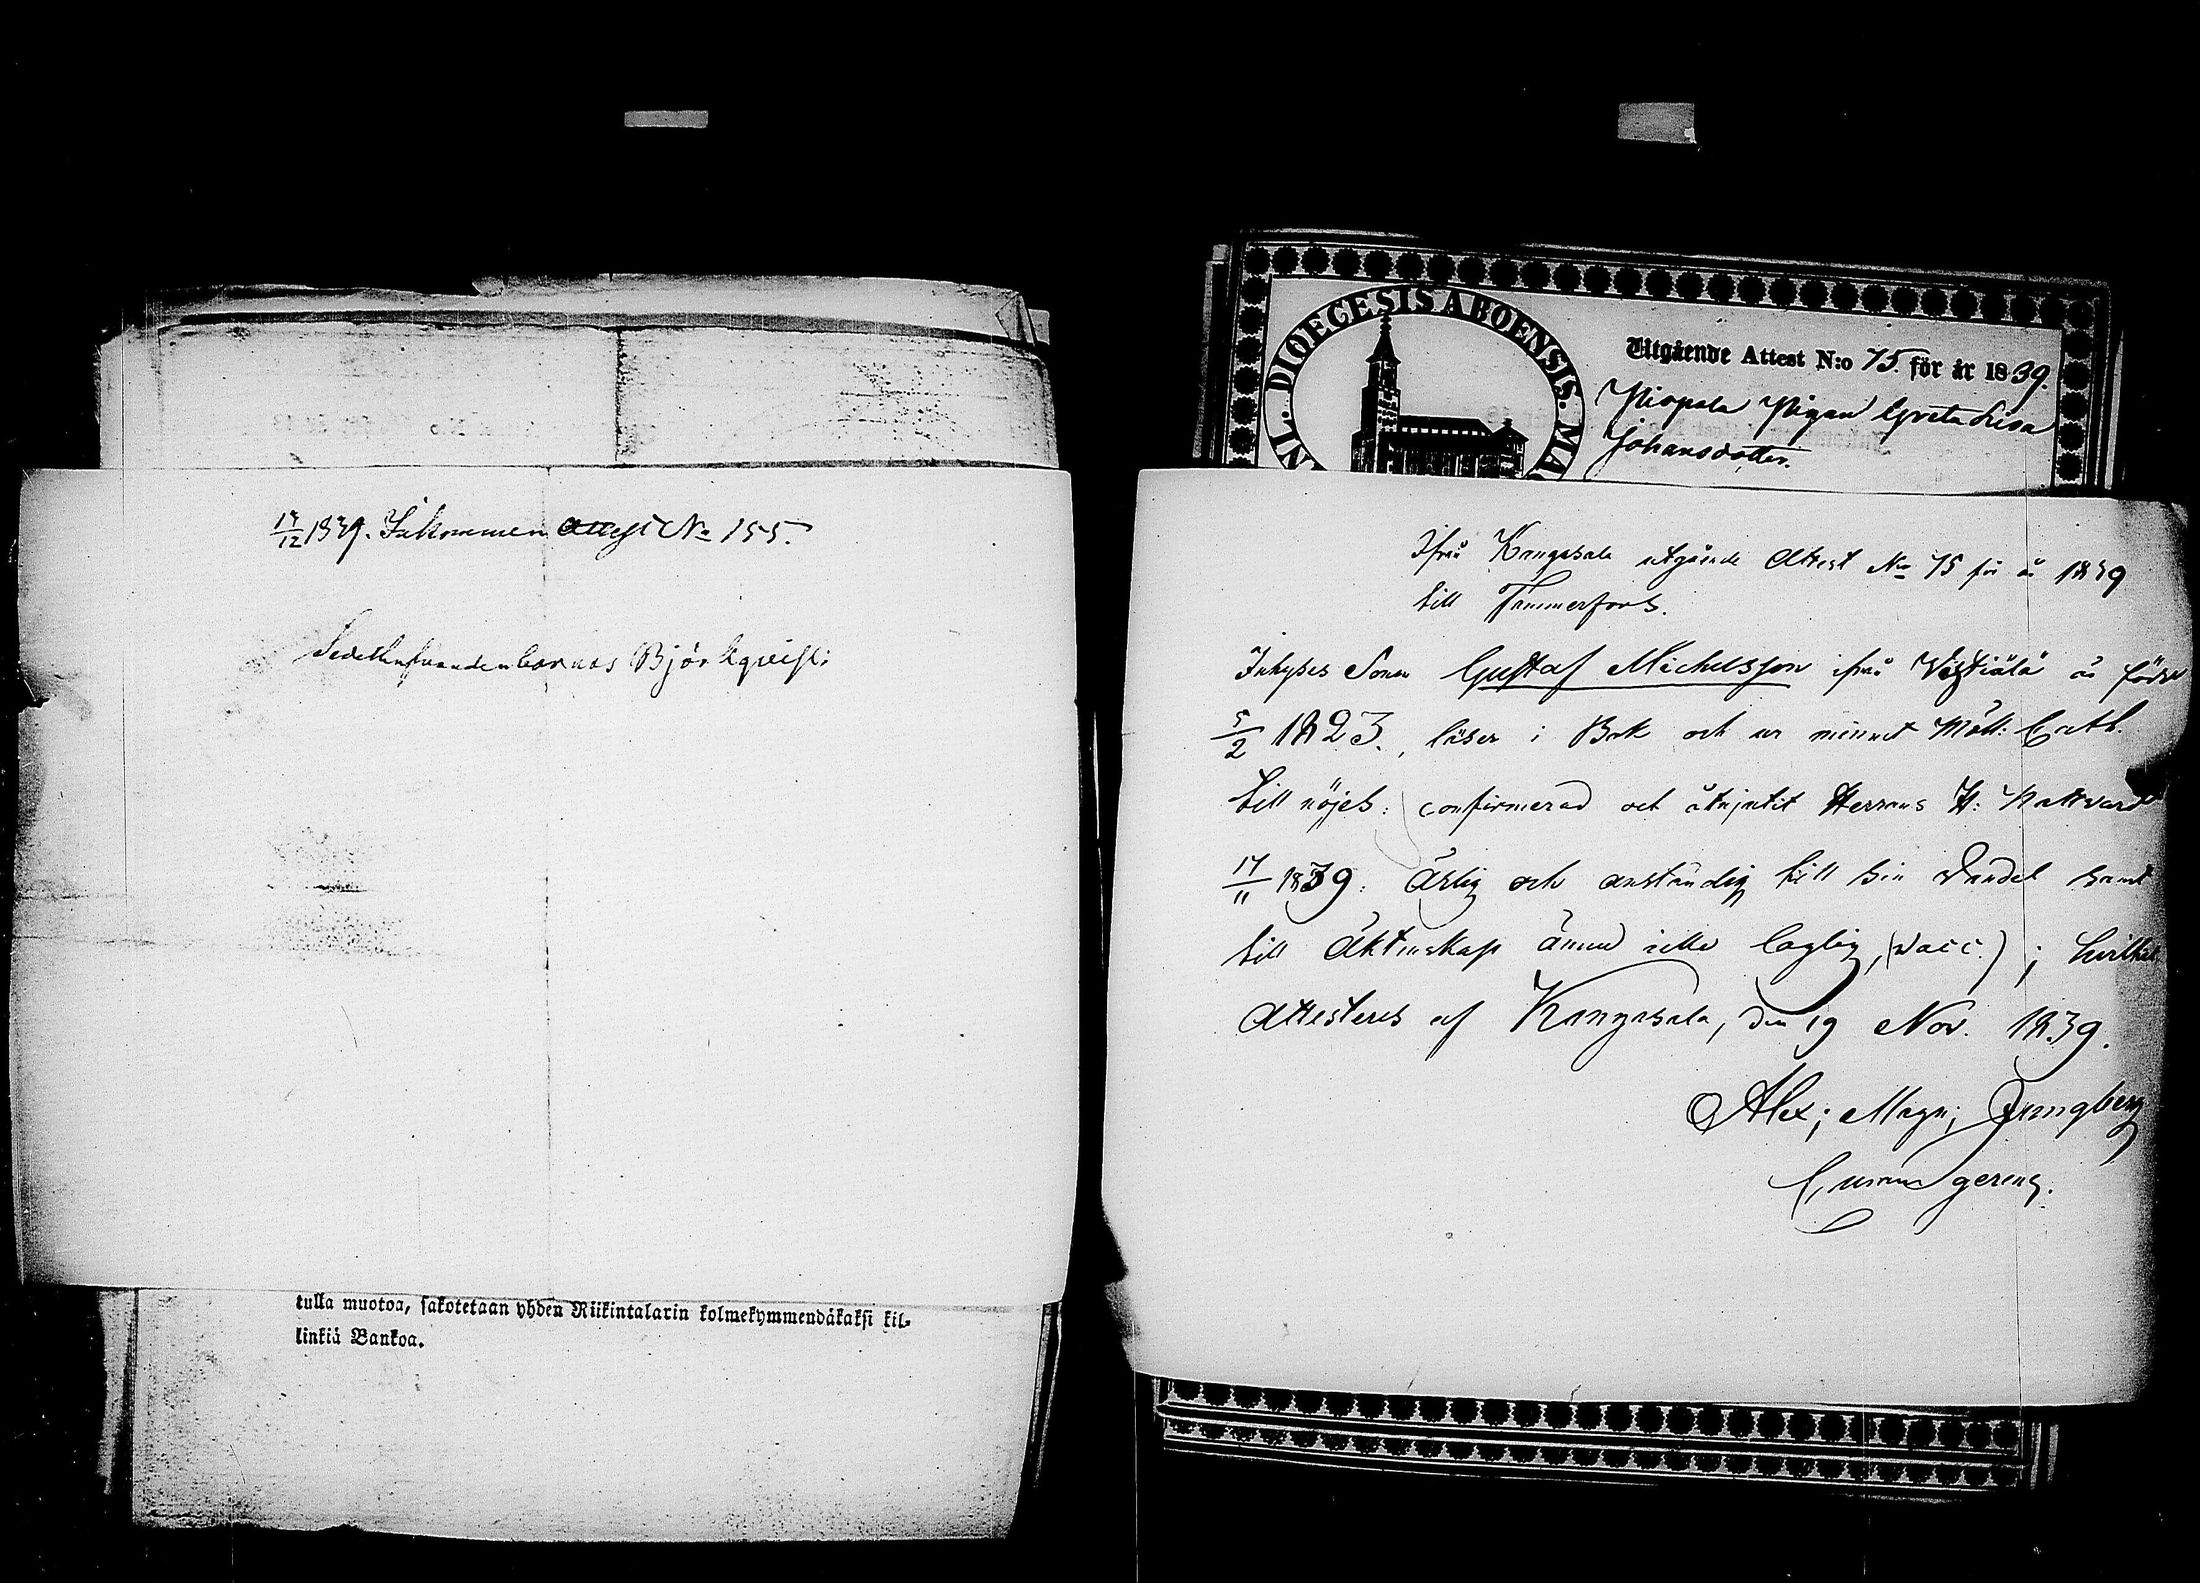 17/12 1839. Inkommen Attest No 155.
Björkqvist:
tulla muotoa, sakotetaan yhden Riikintalarin kolmekymmendäkaksi kil-
linkiä Bankoa.
DIOECESIS ABOENSIS. MA
Utgående Attest N:o 75. för år 1839.
Pigan Greta Lisa
Johansdotter.
Ifrån Kangasala utgående Attest No 75 för år 1839
till Tammerfors.
Inhyses Sonen Gustaf Michelsson ifrån Vestiälä är född
5/2 1823., läser i Bok och ur minnet Möll: Cath.
till nöjes: confirmerad och åtnjutit Herrans H: Nattvard
17/11 1839: Ärlig och anständig till sin Vandel samt
till Äktenskap ännu icke laglig, (vacc.); hvilket
attesteres af Kangasala, den 19 Nov. 1839.
Alex; Magn; Ljungberg